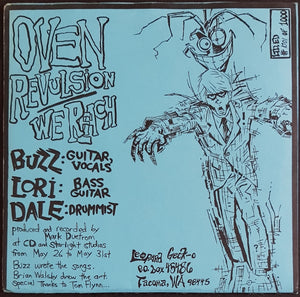 OVEN
REVULSION
WE REACH
BUZZ: GUITAR, VOCALS
LORI: BASS GUITAR
DALE: DRUMMIST
produced and recorded by
Mark Deutrom
at CD and Starlight studios
from May 26 to May 31st
Buzz wrote the songs.
Brian Walsby drew the art.
Special Thanks to Tom Flynn...
Leopard Gecko
P.O. BOX
Tacoma, WA 98445
OF 1000